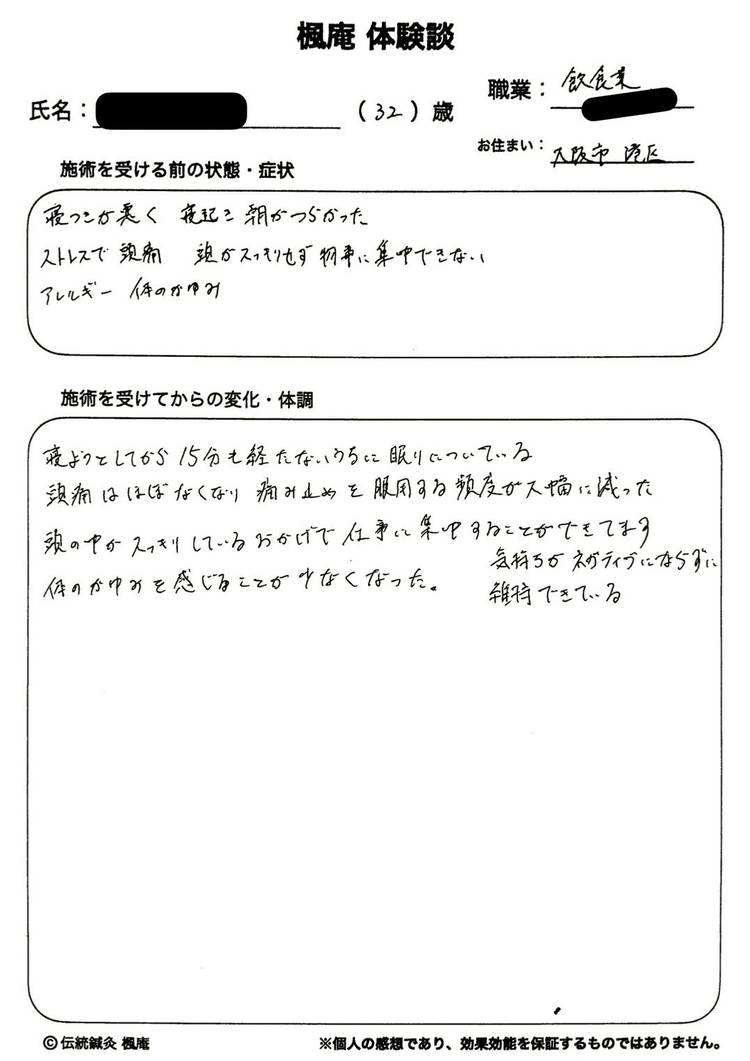 楓庵 体験談
氏名：
（32）歳
職業：飲食業
お住まい：大阪市 港区
施術を受ける前の状態・症状
寝つきが悪く 寝起き 朝がつらかった
ストレスで 頭痛 頭がスッキリせず 物事に集中できない
アレルギー 体のかゆみ
施術を受けてからの変化・体調
寝ようとしてから 15分も経たないうちに 眠りについている
頭痛はほぼなくなり 痛み止めを服用する頻度が大幅に減った
頭の中がスッキリしているおかげで 仕事に集中することができてます
体のかゆみを感じることが少なくなった。
気持ちが ネガティブにならずに
維持できている
© 伝統鍼灸 楓庵
※個人の感想であり、効果効能を保証するものではありません。